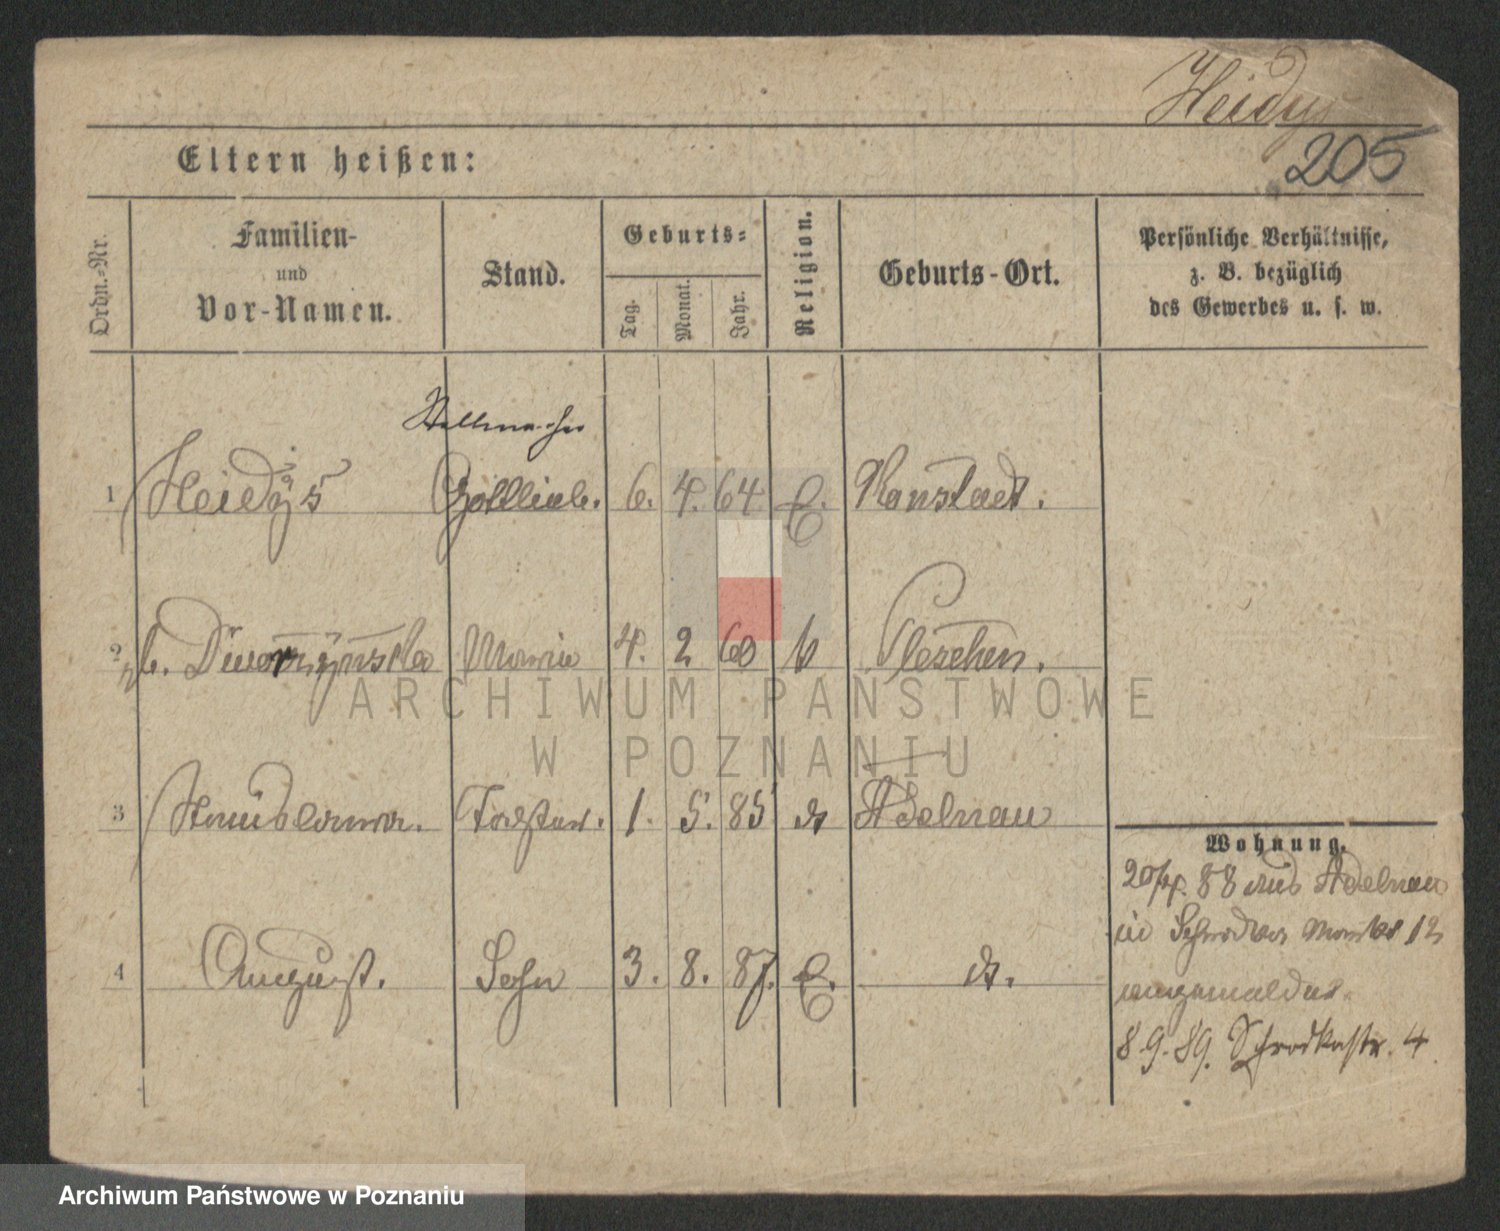 Heidys
205
Eltern heißen:
Ordn.-Nr.
Familien-
und
Vor-Namen.
Stand.
Geburts-
Tag.
Monat.
Jahr.
Religion.
Geburts-Ort.
Persönliche Verhältnisse,
z. B. bezüglich
des Gewerbes u. s. w.
Stellmacher
1 Heidys Gottlieb. 6. 4. 64 E. Konstadt.
2 Marie 4. 2 60 k Pleschen.
ARCHIWUM PAŃSTWOWE
W POZNANIU
3 Stanislawa. Tochter. 1. 5. 85 do Adelnau
4 August. Sohn 3. 8. 87. E. do.
Wohnung.
20/4. 88 aus Adelnau
in Schrodka Markt 12
angemeldet.
8.9.89. Schrodkastr. 4
Archiwum Państwowe w Poznaniu